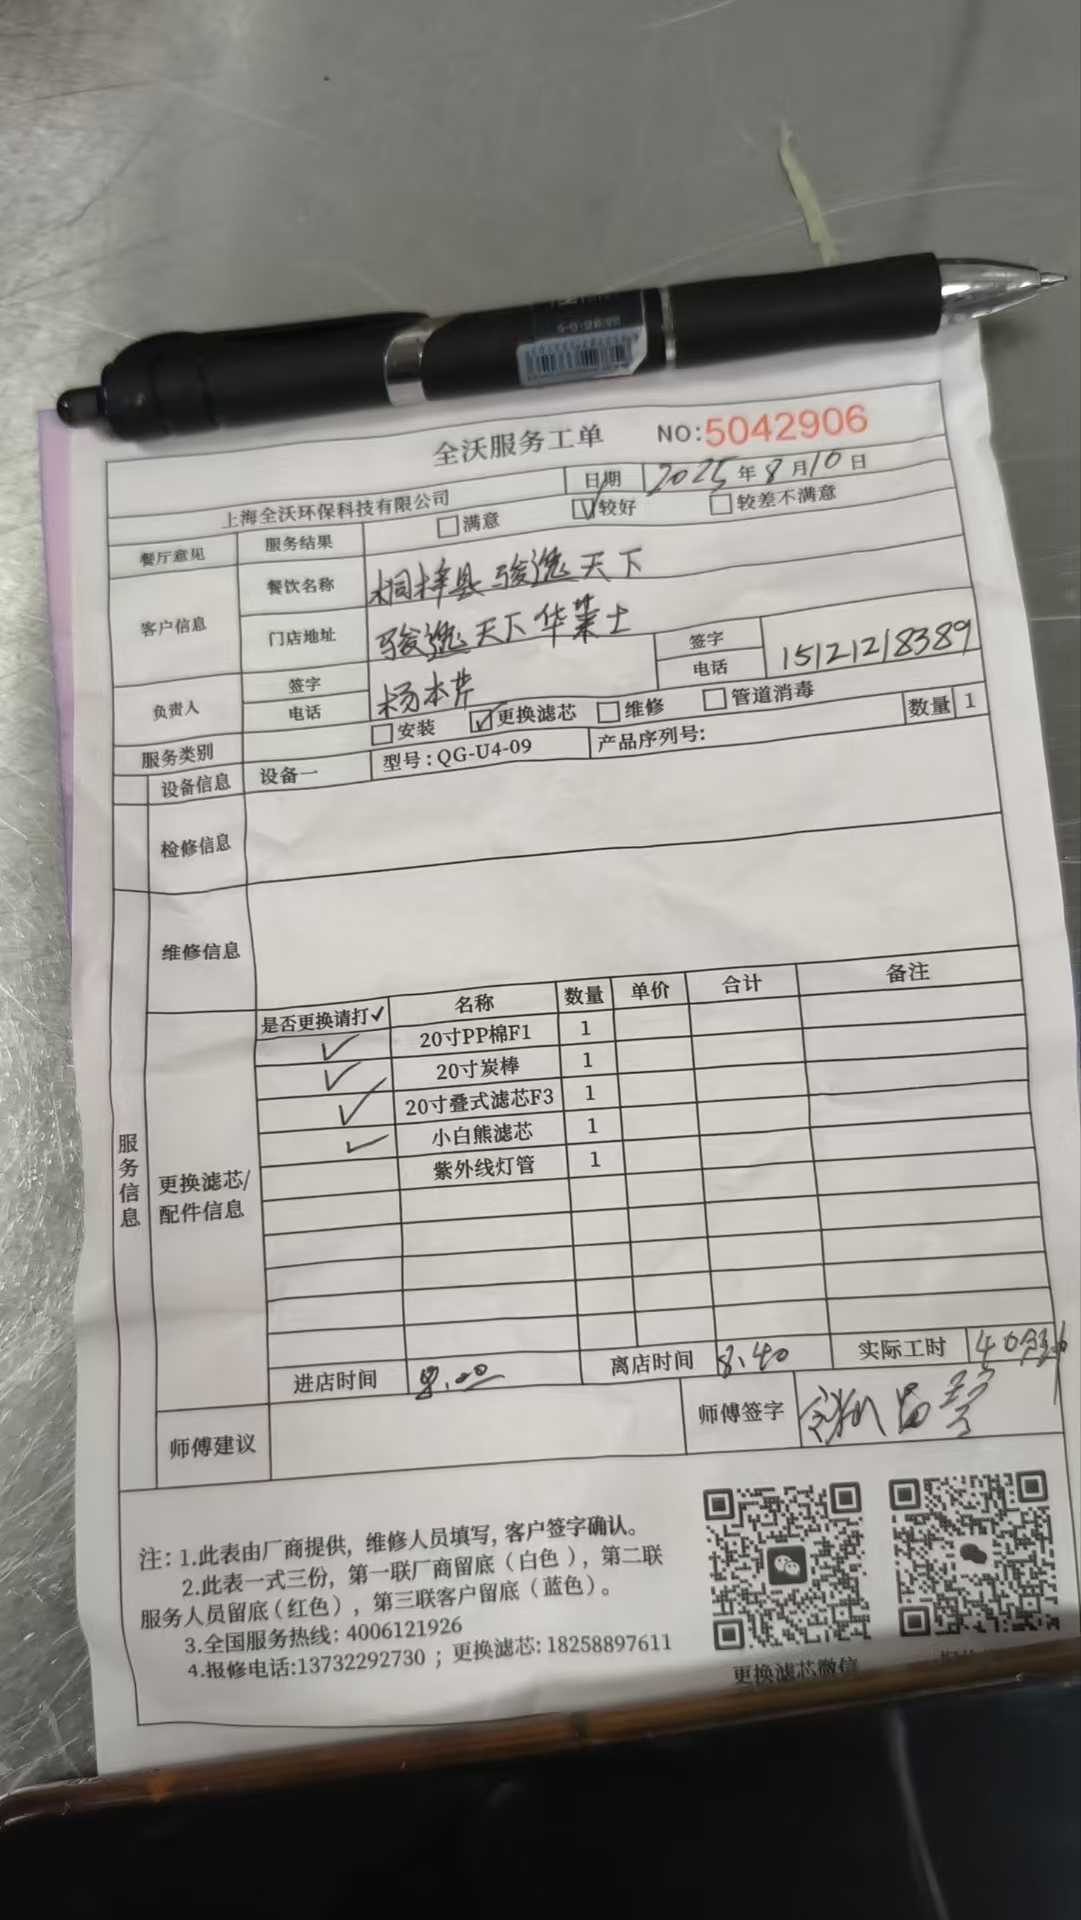 全沃服务工单 NO:5042906
上海全沃环保科技有限公司 日期 2025年8月10日
餐厅意见 服务结果 满意 较好 较差不满意
客户信息 餐饮名称 桐梓县骏逸天下
门店地址 骏逸天下华莱士
负责人 签字 杨本芹 签字
电话 电话 15121218389
服务类别 安装 更换滤芯 维修 管道消毒
设备信息 设备一 型号:QG-U4-09 产品序列号: 数量 1
检修信息
维修信息
服务信息
更换滤芯/
配件信息
是否更换请打✓ 名称 数量 单价 合计 备注
✓ 20寸PP棉F1 1
✓ 20寸炭棒 1
✓ 20寸叠式滤芯F3 1
✓ 小白熊滤芯 1
紫外线灯管 1
进店时间 8.00 离店时间 8.40 实际工时 40分钟
师傅建议 师傅签字
注:1.此表由厂商提供,维修人员填写,客户签字确认。
2.此表一式三份,第一联厂商留底(白色),第二联
服务人员留底(红色),第三联客户留底(蓝色)。
3.全国服务热线:4006121926
4.报修电话:13732292730;更换滤芯:18258897611
更换滤芯微信